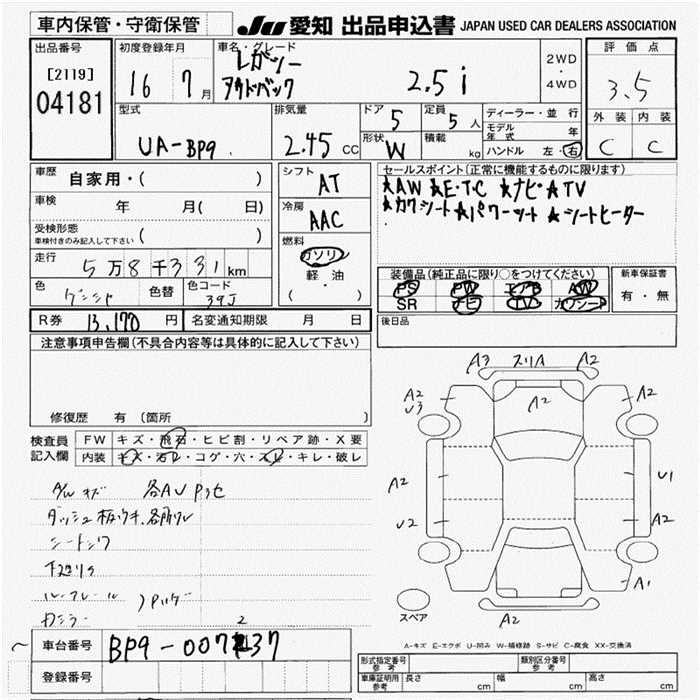 車内保管・守衛保管
JU 愛知 出品申込書 JAPAN USED CAR DEALERS ASSOCIATION
出品番号
[2119]
04181
初度登録年月
16 7月
車名・グレード
レガシー
アウトバック 2.5i
2WD
・
4WD
評価点
3.5
外装 内装
C C
型式
UA-BP9
排気量
2.45 CC
ドア 5
定員 5人
形状 W
積載 kg
ディーラー・並行
モデル年式 年
ハンドル 左・右
車歴 自家用・( )
車検 年 月( 日)
受検形態
車検付きのみ記入して下さい ( )
走行 5万8千331km
色 色替 色コード
39J
シフト
AT
冷房
AAC
燃料
ガソリン
軽・油
( )
セールスポイント(正常に機能するものに限ります)
★AW ★E・T・C ★ナビ ★TV
★カワシート ★パワーシート ★シートヒーター
装備品(純正品に限り○をつけてください)
PS PW エアB AW
SR ナビ TV カワシート
新車保証書
有・無
後日品
R券 13,170円 名変通知期限 月 日
注意事項申告欄(不具合内容等は具体的に記入して下さい)
修復歴 有(箇所 )
検査員
記入欄
FW キズ・飛石・ヒビ割・リペア跡・X要
内装 キズ・汚レ・コゲ・穴・スレ・キレ・破レ
A/W キズ
シートシワ
A3 スリA A2
A2 A2 A2
U3
A2 U1
U2 A2
A1
スペア
A2
A-キズ E-エクボ U-凹み W-補修跡 S-サビ C-腐食 XX-交換済
2
車台番号 BP9-007137
登録番号
型式指定番号
参考
類別区分番号
参考
車庫証明用
参考
長さ cm 幅 cm 高さ cm